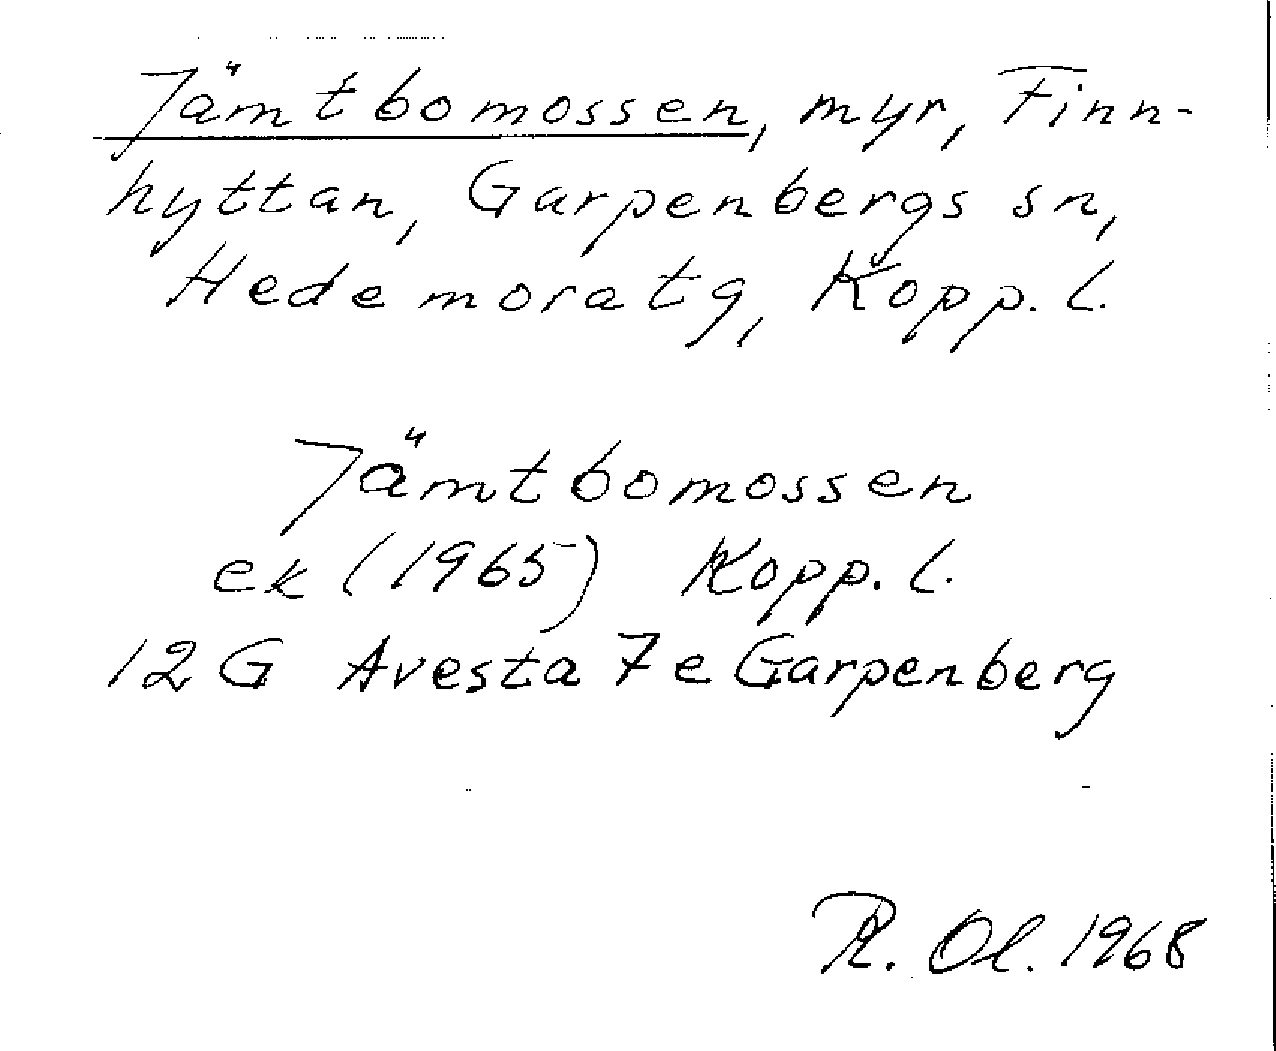 Jämtbomossen, myr, Finn-
hyttan, Garpenbergs sn,
Hedemoratg, Kopp. l.
Jämtbomossen
ek (1965) Kopp. l.
12 G Avesta 7 e Garpenberg
R. Ol. 1968